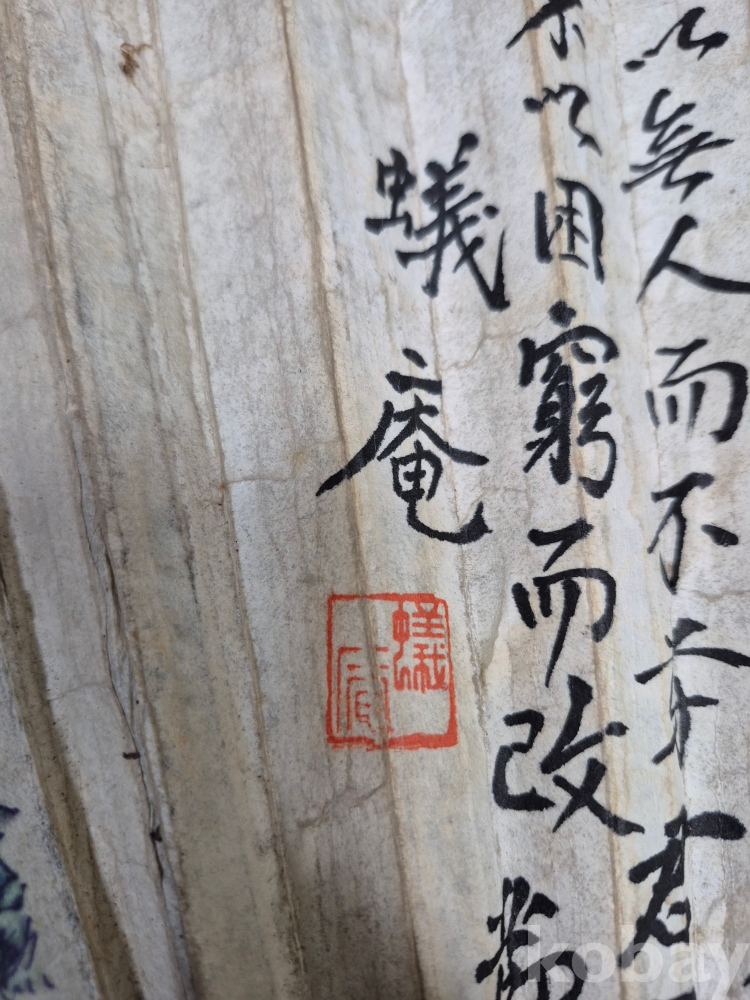 以無人而不芳君
不以困窮而改節
蟻庵
蟻
kobay